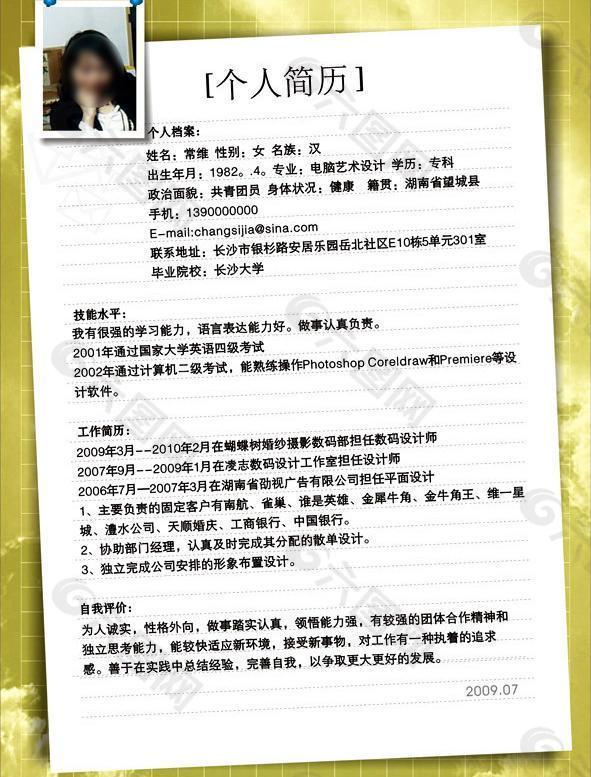 [个人简历]
个人档案：
姓名：常维 性别：女 名族：汉
出生年月：1982。.4。专业：电脑艺术设计 学历：专科
政治面貌：共青团员 身体状况：健康 籍贯：湖南省望城县
手机：1390000000
E-mail:changsijia@sina.com
联系地址：长沙市银杉路安居乐园岳北社区E10栋5单元301室
毕业院校：长沙大学
技能水平：
我有很强的学习能力，语言表达能力好。做事认真负责。
2001年通过国家大学英语四级考试
2002年通过计算机二级考试，能熟练操作Photoshop Coreldraw和Premiere等设
计软件。
工作简历：
2009年3月--2010年2月在蝴蝶树婚纱摄影数码部担任数码设计师
2007年9月--2009年1月在凌志数码设计工作室担任设计师
2006年7月—2007年3月在湖南省劭视广告有限公司担任平面设计
1、主要负责的固定客户有南航、雀巢、谁是英雄、金犀牛角、金牛角王、维一星
城、澧水公司、天顺婚庆、工商银行、中国银行。
2、协助部门经理，认真及时完成其分配的散单设计。
3、独立完成公司安排的形象布置设计。
自我评价：
为人诚实，性格外向，做事踏实认真，领悟能力强，有较强的团体合作精神和
独立思考能力，能较快适应新环境，接受新事物，对工作有一种执着的追求
感。善于在实践中总结经验，完善自我，以争取更大更好的发展。
2009.07
六图网